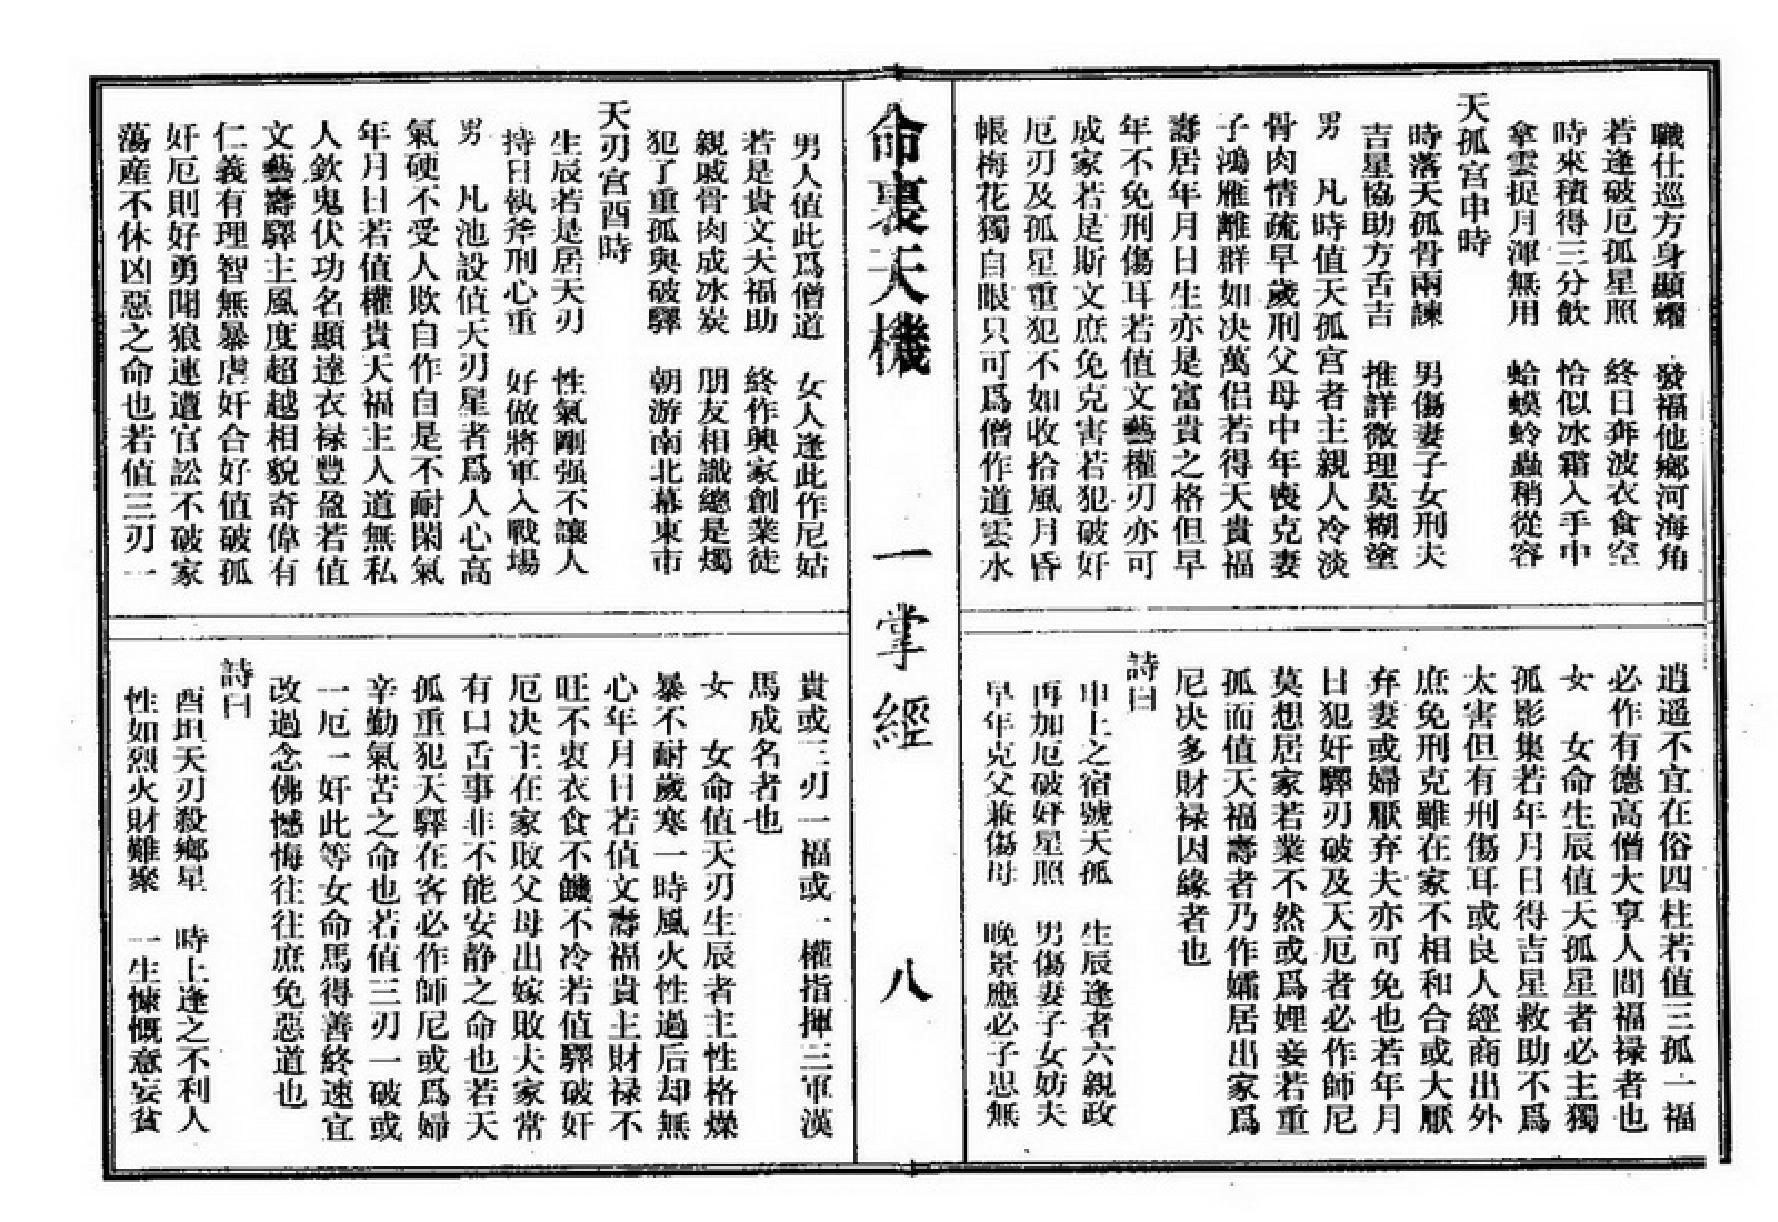 職仕巡方身顯耀　發福他鄉河海角
若逢破厄孤星照　終日奔波衣食空
時來積得三分飲　恰似冰霜入手中
拿雲捉月渾無用　蛤蟆蛉蟲稍從容
天孤宮申時
時落天孤骨兩諫　男傷妻子女刑夫
吉星協助方舌吉　推詳微理莫糊塗
男　凡時值天孤宮者主親人冷淡
骨肉情疏早歲刑父母中年喪克妻
子鴻雁離群如决萬侶若得天貴福
壽居年月日生亦是富貴之格但早
年不免刑傷耳若值文藝權刃亦可
成家若是斯文庶免克害若犯破奸
厄刃及孤星重犯不如收拾風月昏
帳梅花獨自眼只可爲僧作道雲水
逍遥不宜在俗四柱若值三孤一福
必作有德高僧大享人間福禄者也
女　女命生辰值天孤星者必主獨
孤影集若年月日得吉星救助不爲
太害但有刑傷耳或良人經商出外
庶免刑克雖在家不相和合或大厭
弃妻或婦厭弃夫亦可免也若年月
日犯奸驛刃破及天厄者必作師尼
莫想居家若業不然或爲娌妾若重
孤而值天福壽者乃作孀居出家爲
尼决多財禄因緣者也
詩曰
申上之宿號天孤　生辰逢者六親政
再加厄破奸星照　男傷妻子女妨夫
早年克父兼傷母　晚景應必子思無
命裏天機　一掌經　八
男人值此爲僧道　女人逢此作尼姑
若是貴文天福助　終作興家創業徒
親戚骨肉成冰炭　朋友相識總是燭
犯了重孤與破驛　朝游南北幕東市
天刃宮酉時
生辰若是居天刃　性氣剛强不讓人
持日執斧刑心重　好做將軍入戰場
男　凡池設值天刃星者爲人心高
氣硬不受人欺自作自是不耐閑氣
年月日若值權貴天福主人道無私
人欽鬼伏功名顯達衣禄豐盈若值
文藝壽驛主風度超越相貌奇偉有
仁義有理智無暴虐奸合好值破孤
奸厄則好勇閗狼連遭官訟不破家
蕩産不休凶惡之命也若值三刃一
貴或三刃一福或一權指揮三軍漢
馬成名者也
女　女命值天刃生辰者主性格爍
暴不耐歲寒一時風火性過后却無
心年月日若值文壽福貴主財禄不
旺不衷衣食不饑不冷若值驛破奸
厄决主在家敗父母出嫁敗夫家常
有口舌事非不能安静之命也若天
孤重犯天驛在客必作師尼或爲婦
辛勤氣苦之命也若值三刃一破或
一厄一奸此等女命馬得善終速宜
改過念佛憾悔往往庶免惡道也
詩曰
酉坦天刃殺鄉星　時上逢之不利人
性如烈火財難聚　一生慷慨意妄貧